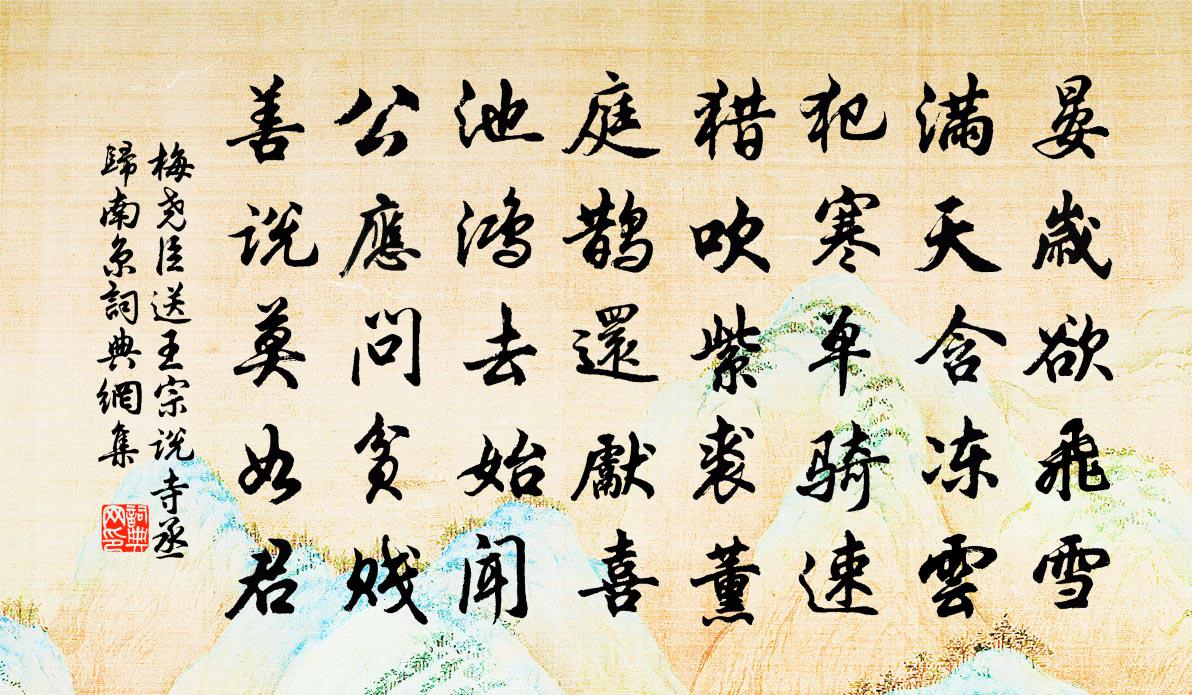 晏歲欲飛雪
滿天含冻雲
犯寒单騎速
猎吹紫裘薰
庭鵲還獻喜
池鴻去始聞
公應問貧賤
善說莫如君
梅尧臣送王宗說寺丞
歸南京詞典網集
詞典
网印